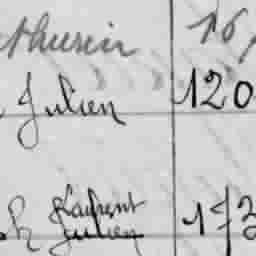 thurin 16
Julien 120
Laurent
h Julien 173